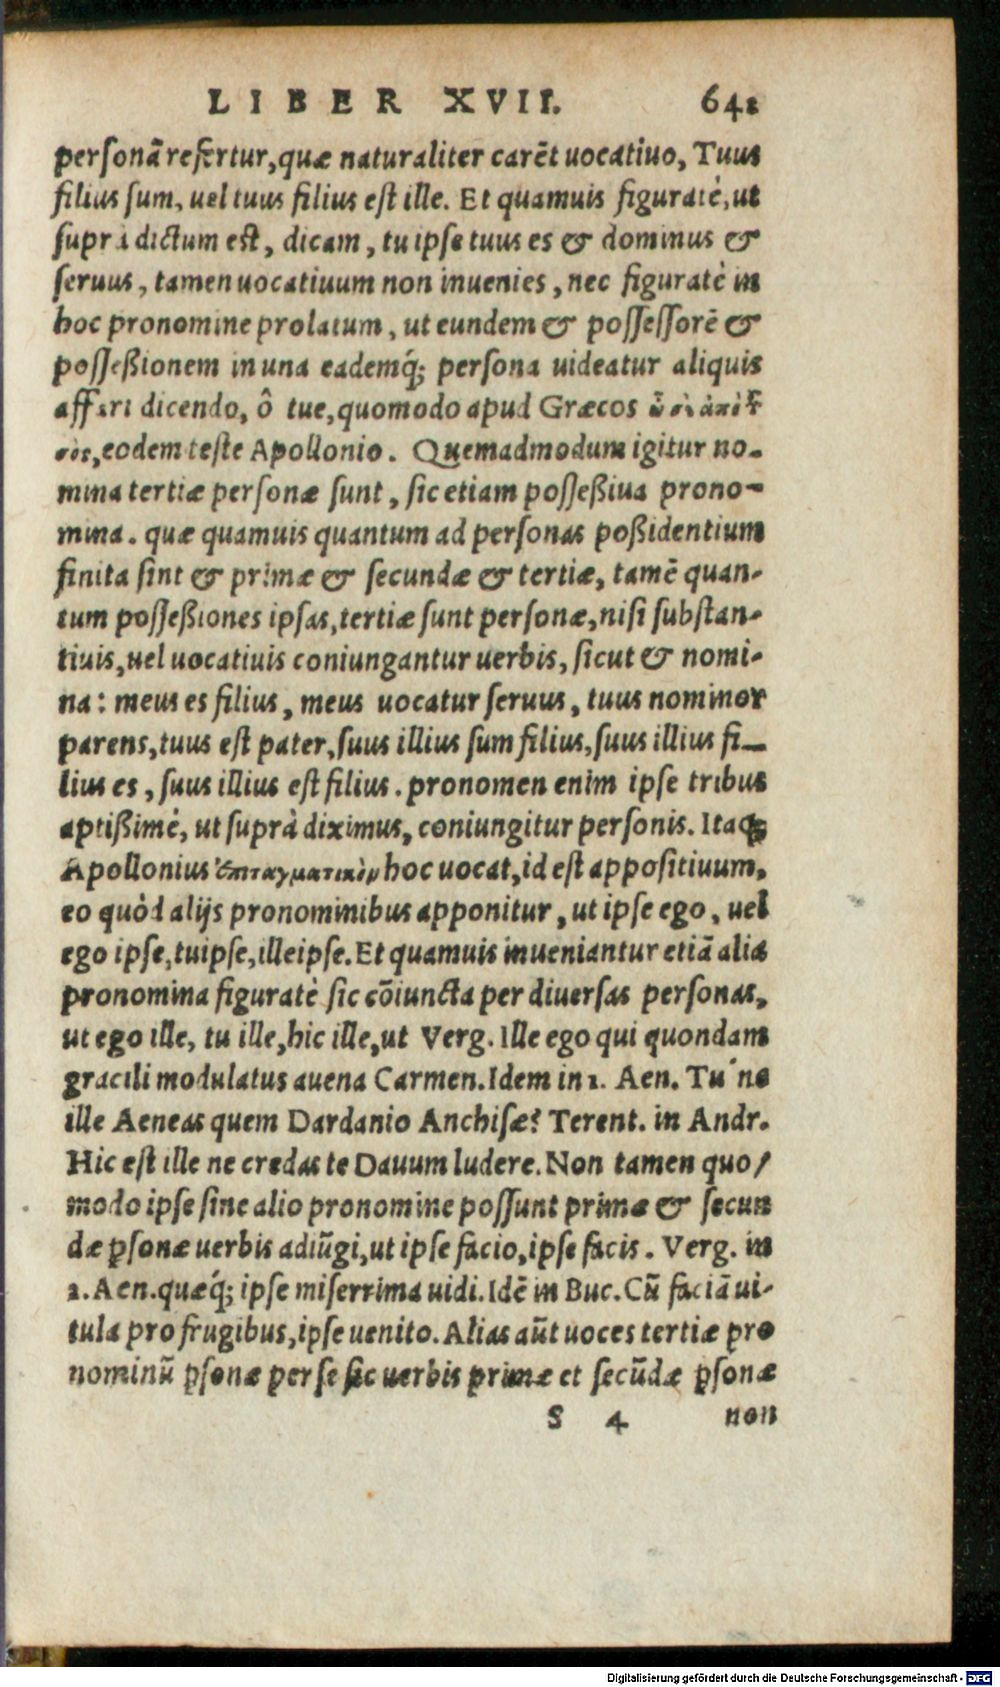 LIBER XVII. 641
personā refertur, quæ naturaliter carēt uocatiuo, Tuus
filius sum, uel tuus filius est ille. Et quamuis figuratè, ut
supra dictum est, dicam, tu ipse tuus es & dominus &
seruus, tamen uocatiuum non inuenies, nec figuratè in
hoc pronomine prolatum, ut eundem & possessorē &
posseßionem in una eademq́; persona uideatur aliquis
affari dicendo, ô tue, quomodo apud Græcos
eodem teste Apollonio. Quemadmodum igitur no-
mina tertiæ personæ sunt, sic etiam posseßiua prono-
mina. quæ quamuis quantum ad personas poßidentium
finita sint & primæ & secundæ & tertiæ, tamē quan-
tum posseßiones ipsas, tertiæ sunt personæ, nisi substan-
tiuis, uel uocatiuis coniungantur uerbis, sicut & nomi-
na: meus es filius, meus uocatur seruus, tuus nominor
parens, tuus est pater, suus illius sum filius, suus illius fi-
lius es, suus illius est filius. pronomen enim ipse tribus
aptißimè, ut suprà diximus, coniungitur personis. Itaq;
Apollonius ἐπιταγματικὸν hoc uocat, id est appositiuum,
eo quòd alijs pronominibus apponitur, ut ipse ego, uel
ego ipse, tu ipse, ille ipse. Et quamuis inueniantur etiā alia
pronomina figuratè sic cōiuncta per diuersas personas,
ut ego ille, tu ille, hic ille, ut Verg. Ille ego qui quondam
gracili modulatus auena Carmen. Idem in 1. Aen. Tu'ne
ille Aeneas quem Dardanio Anchisæ? Terent. in Andr.
Hic est ille ne credas te Dauum ludere. Non tamen quo/
modo ipse sine alio pronomine possunt primæ & secun
dæ ꝑsonæ uerbis adiūgi, ut ipse facio, ipse facis. Verg. in
2. Aen. quæq́; ipse miserrima uidi. Idē in Buc. Cū faciā ui-
tula pro frugibus, ipse uenito. Alias aūt uoces tertiæ pro
nominū ꝑsonæ per se sic uerbis primæ et secūdæ ꝑsonæ
S 4 non
Digitalisierung gefördert durch die Deutsche Forschungsgemeinschaft - DFG